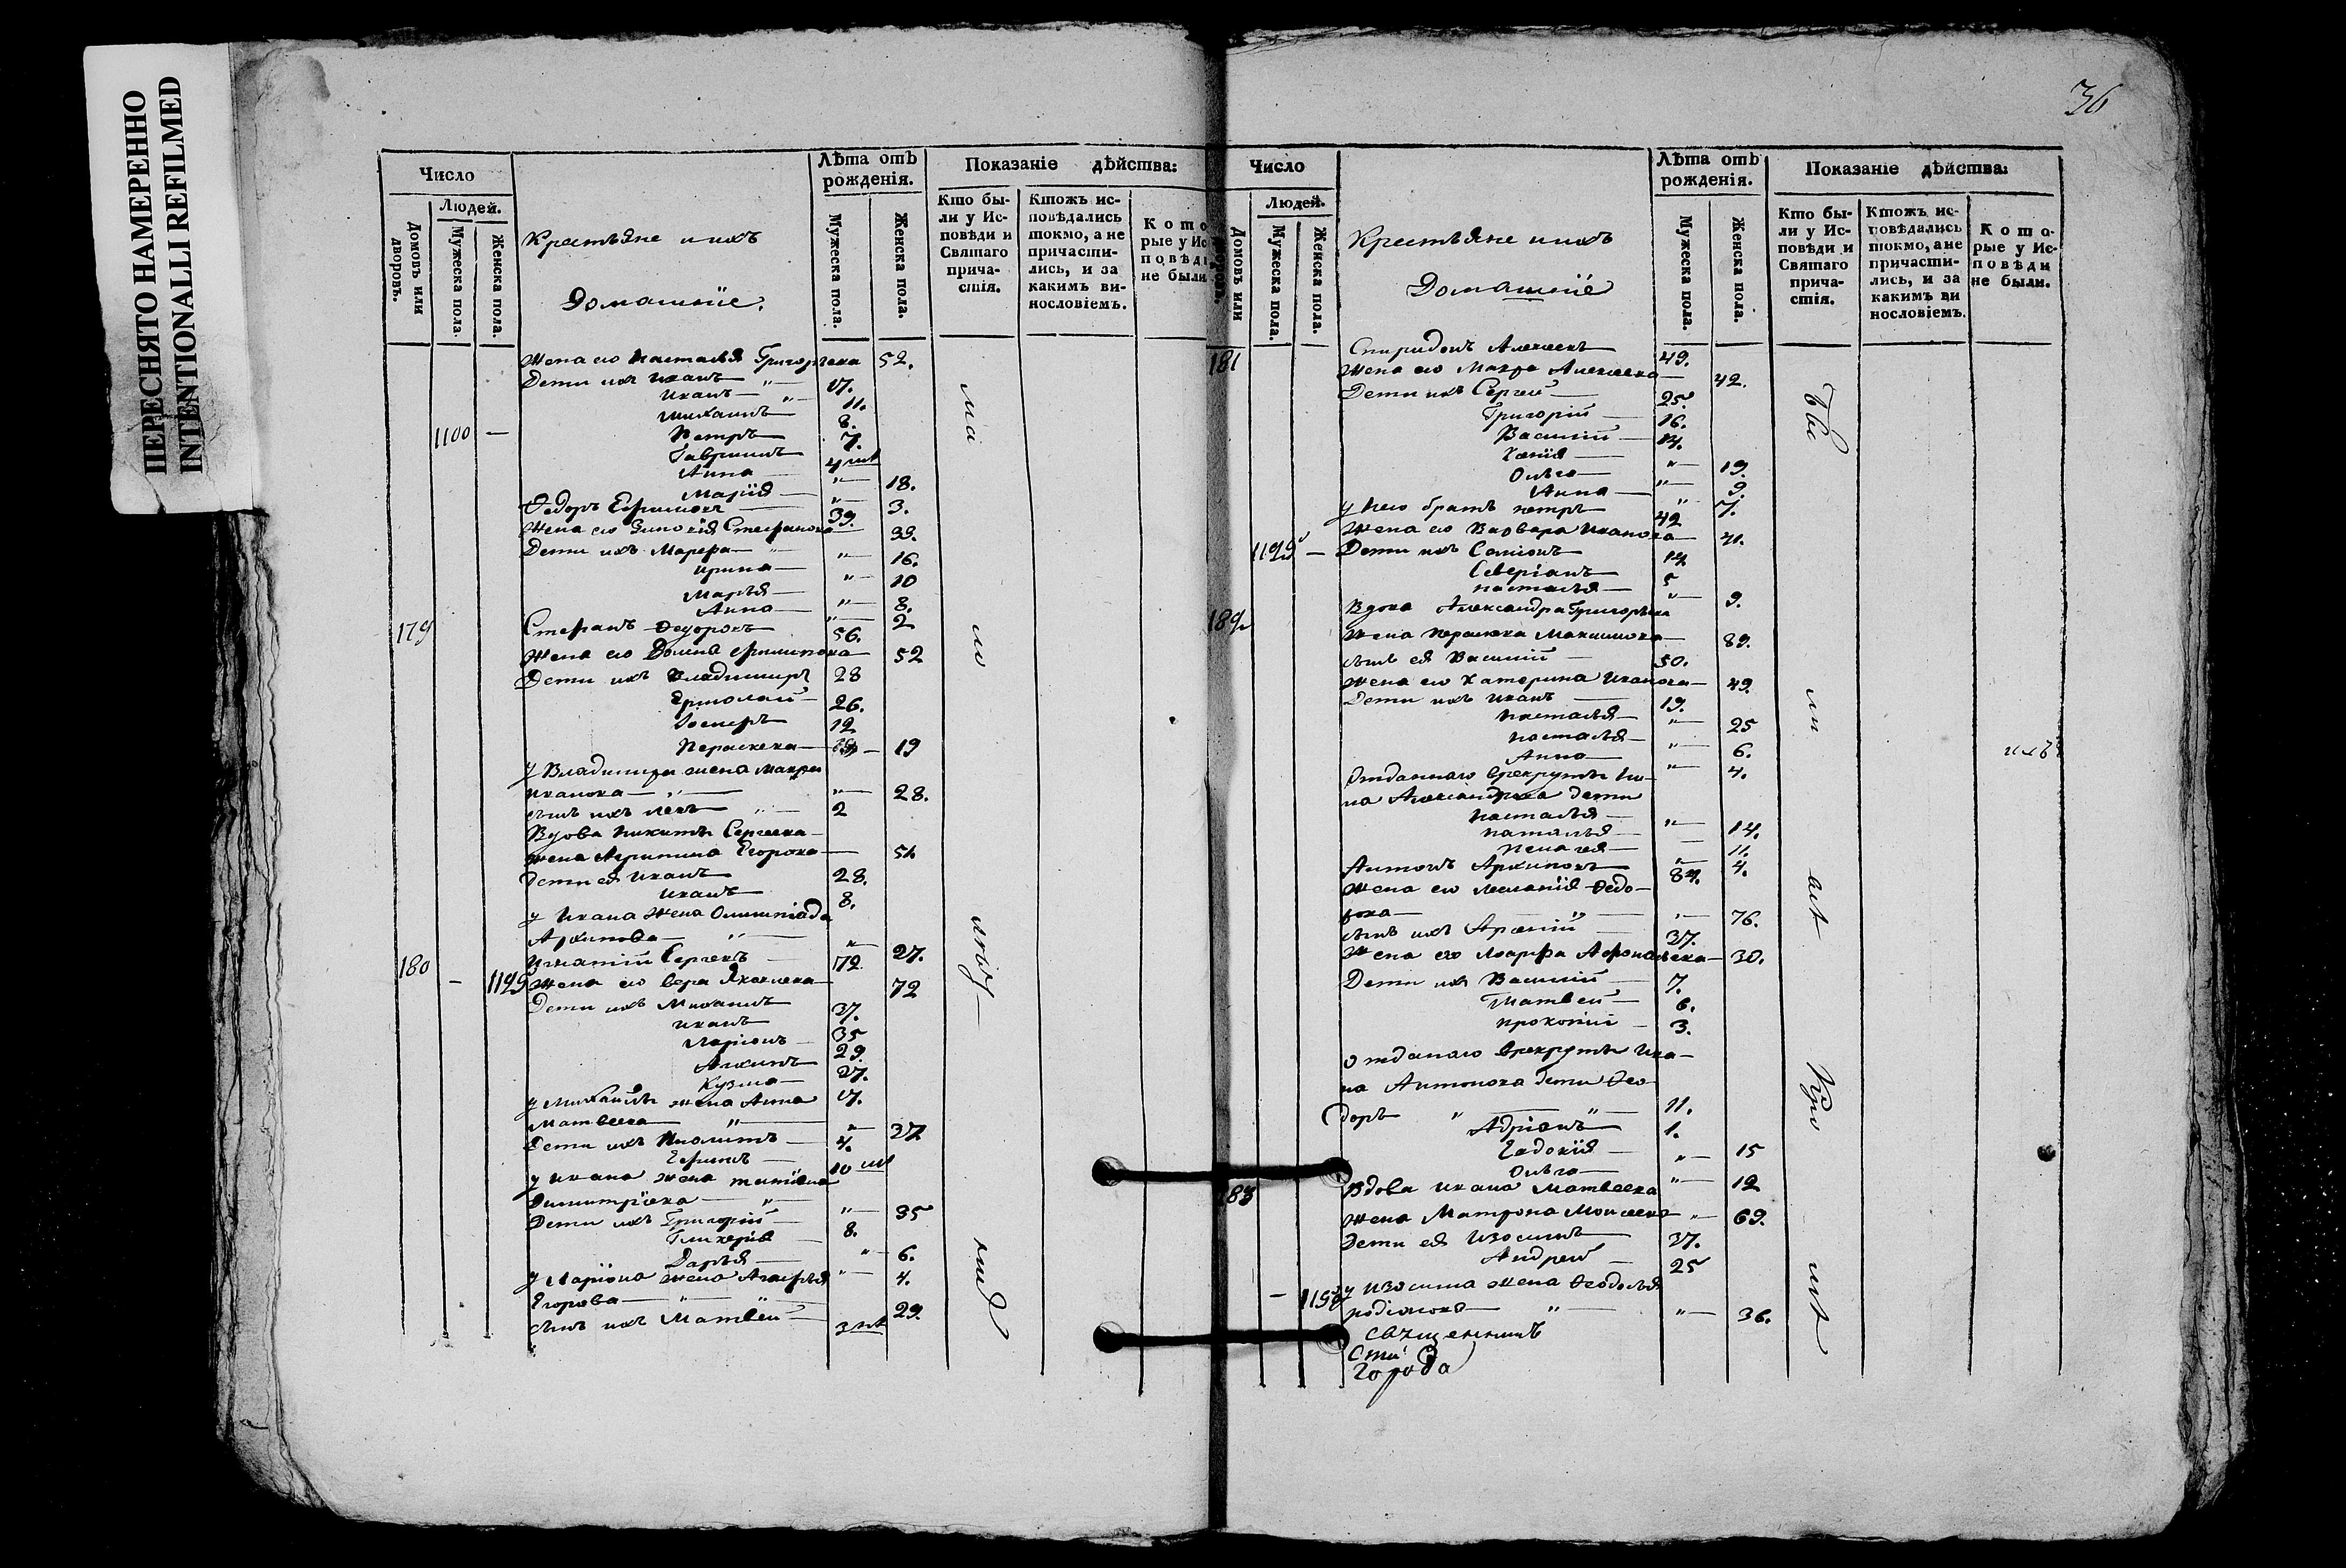 ПЕРЕСНЯТО НАМЕРЕННО
INTENTIONALLI REFILMED
36
Число
Людей.
Домовъ или дворовъ.
Мужеска пола.
Женска пола.
Крестьяне и ихъ
Домашніе.
Лѣта отъ рожденія.
Мужеска пола.
Женска пола.
Показаніе дѣйства:
Кто бы-
ли у Ис-
повѣди и
Святаго
прича-
стія.
Ктожъ ис-
повѣдались
токмо, а не
причасти-
лись, и за
какимъ ви-
нословіемъ.
К о т о
рые у Ис
п о в ѣ д
не были
Жена его Настасья Григорьева 52.
Дети ихъ Иванъ 17.
Иванъ 11.
Михаилъ 8.
1100 — Петръ 7.
Гавриилъ 4
Анна 18.
Марія 3.
Федоръ Ефимовъ 39.
Жена его Зиновія Стефанова 39.
Дети ихъ Марфа 16.
Ирина 10
Марья 8.
Анна 2
179 Стефанъ Федоровъ 56.
Жена его Домна Филипова 52
Дети ихъ Владимиръ 28
Ермолай 26.
12
Параскева 19
у Владимира жена Мавра
Иванова 28.
сынъ ихъ 2
Вдова Никиты Сергеева
жена Агрипина Егорова 51
Дети ея Иванъ 28.
Иванъ 8.
у Ивана жена Олимпіада
Архипова 27.
180 Игнатій Сергеевъ 72.
— 1199 Жена его Вера Яковлева 72
Дети ихъ Михаилъ 37.
Иванъ 35
Ларіонъ 29.
27.
Кузма 17.
у Михаилы жена Анна
Матвеева 37
Дети ихъ 4.
Ефимъ 10
у Ивана жена Татіана
Димитріева 35
Дети ихъ Григорій 8.
Гликерія 6.
Дарья 4.
у Ларіона жена Агафья
Егорова 29.
сынъ ихъ Матвей 3
Число
Людей.
Домовъ или
Мужеска пола.
Женска пола.
Крестьяне и ихъ
Домашніе
Лѣта отъ рожденія.
Мужеска пола.
Женска пола.
Показаніе дѣйства:
Кто бы-
ли у Ис-
повѣди и
Святаго
прича-
стія.
Ктожъ ис-
повѣдались
токмо, а не
причасти-
лись, и за
какимъ ви
нословіемъ.
К о т о-
рые у Ис-
п о в ѣ д и
не были.
181 Спиридонъ Алексеевъ 49.
Жена его Мавра Алексеева 42.
Дети ихъ Сергей 25.
Григорій 16.
Василій 14.
19.
Ольга 9.
Анна 7.
у него братъ Петръ 42
Жена его Варвара Иванова 41.
Дети ихъ Семіонъ 14
Северіанъ 5
Настасья 9.
182 Вдова Александра Григорьева
Жена Параскева Максимова 89.
сынъ ея Василій 50.
Жена его Катерина Иванова 49.
Дети ихъ Иванъ 19.
Настасья 25
Настасья 6.
Анна 4.
Отданнаго врекруты
на Александрова дети
Настасья 14.
Наталья 11.
Пелагея 4.
Антонъ Архиповъ 84.
Жена его Меланія Федо-
рова 76.
сынъ ихъ Арсеній 37.
Жена его Марфа Афонасьева 30.
Дети ихъ Василій 7.
Матвей 6.
Прокопій 3.
Отданаго врекруты Ива-
на Антонова дети Фео-
доръ 11.
Адріанъ 1.
Евдокія 15
Ольга 12
183 Вдова Ивана Матвеева
Жена Матрона Моисеева 69.
Дети ея Изосимъ 37.
Андрей 25
у Изосима жена Феодосья
Родіонова 36.
Священникъ
Города